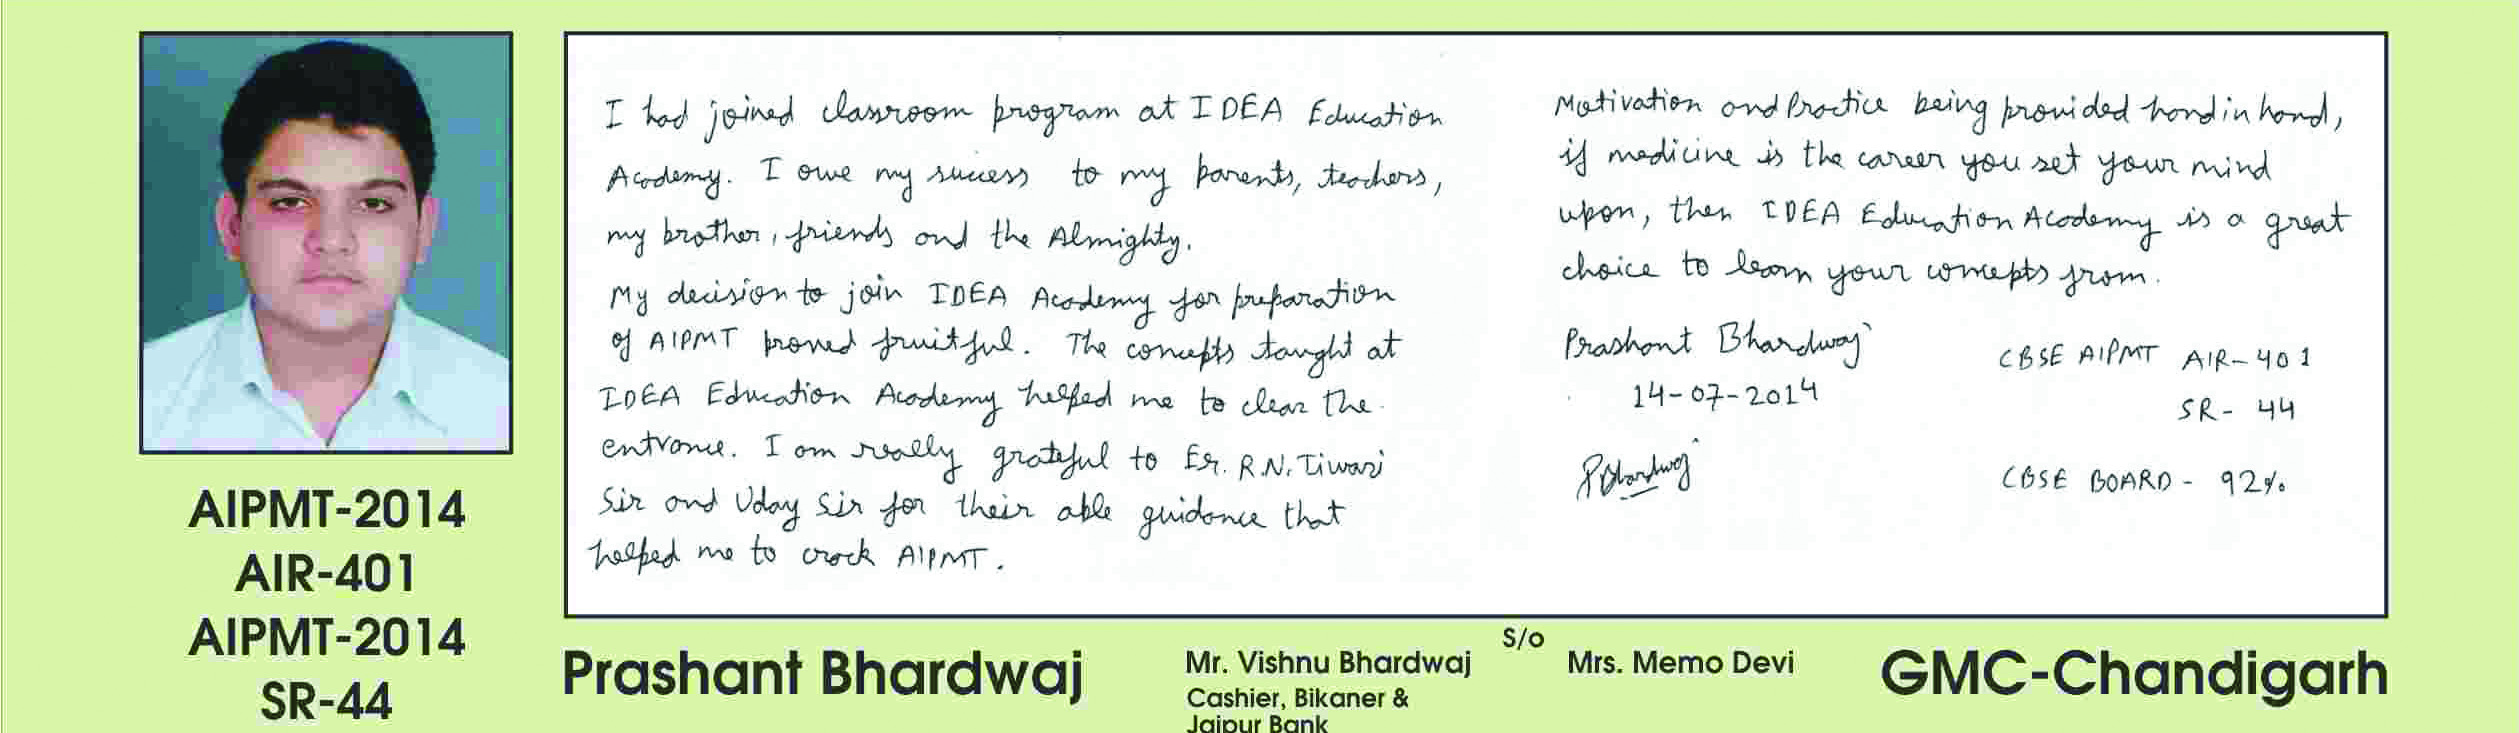 I had joined classroom program at IDEA Education
Academy. I owe my success to my parents, teachers,
my brother, friends and the Almighty.
My decision to join IDEA Academy for preparation
of AIPMT proved fruitful. The concepts taught at
IDEA Education Academy helped me to clear the
entrance. I am really grateful to Er. R.N. Tiwari
Sir and Uday Sir for their able guidance that
helped me to crack AIPMT.
Motivation and Practice being provided hand in hand,
if medicine is the career you set your mind
upon, then IDEA Education Academy is a great
choice to learn your concepts from.
Prashant Bhardwaj
14-07-2014
PBhardwaj
CBSE AIPMT AIR-401
SR- 44
CBSE BOARD - 92%
AIPMT-2014
AIR-401
AIPMT-2014
SR-44
Prashant Bhardwaj
S/o
Mr. Vishnu Bhardwaj
Cashier, Bikaner &
Jaipur Bank
Mrs. Memo Devi
GMC-Chandigarh